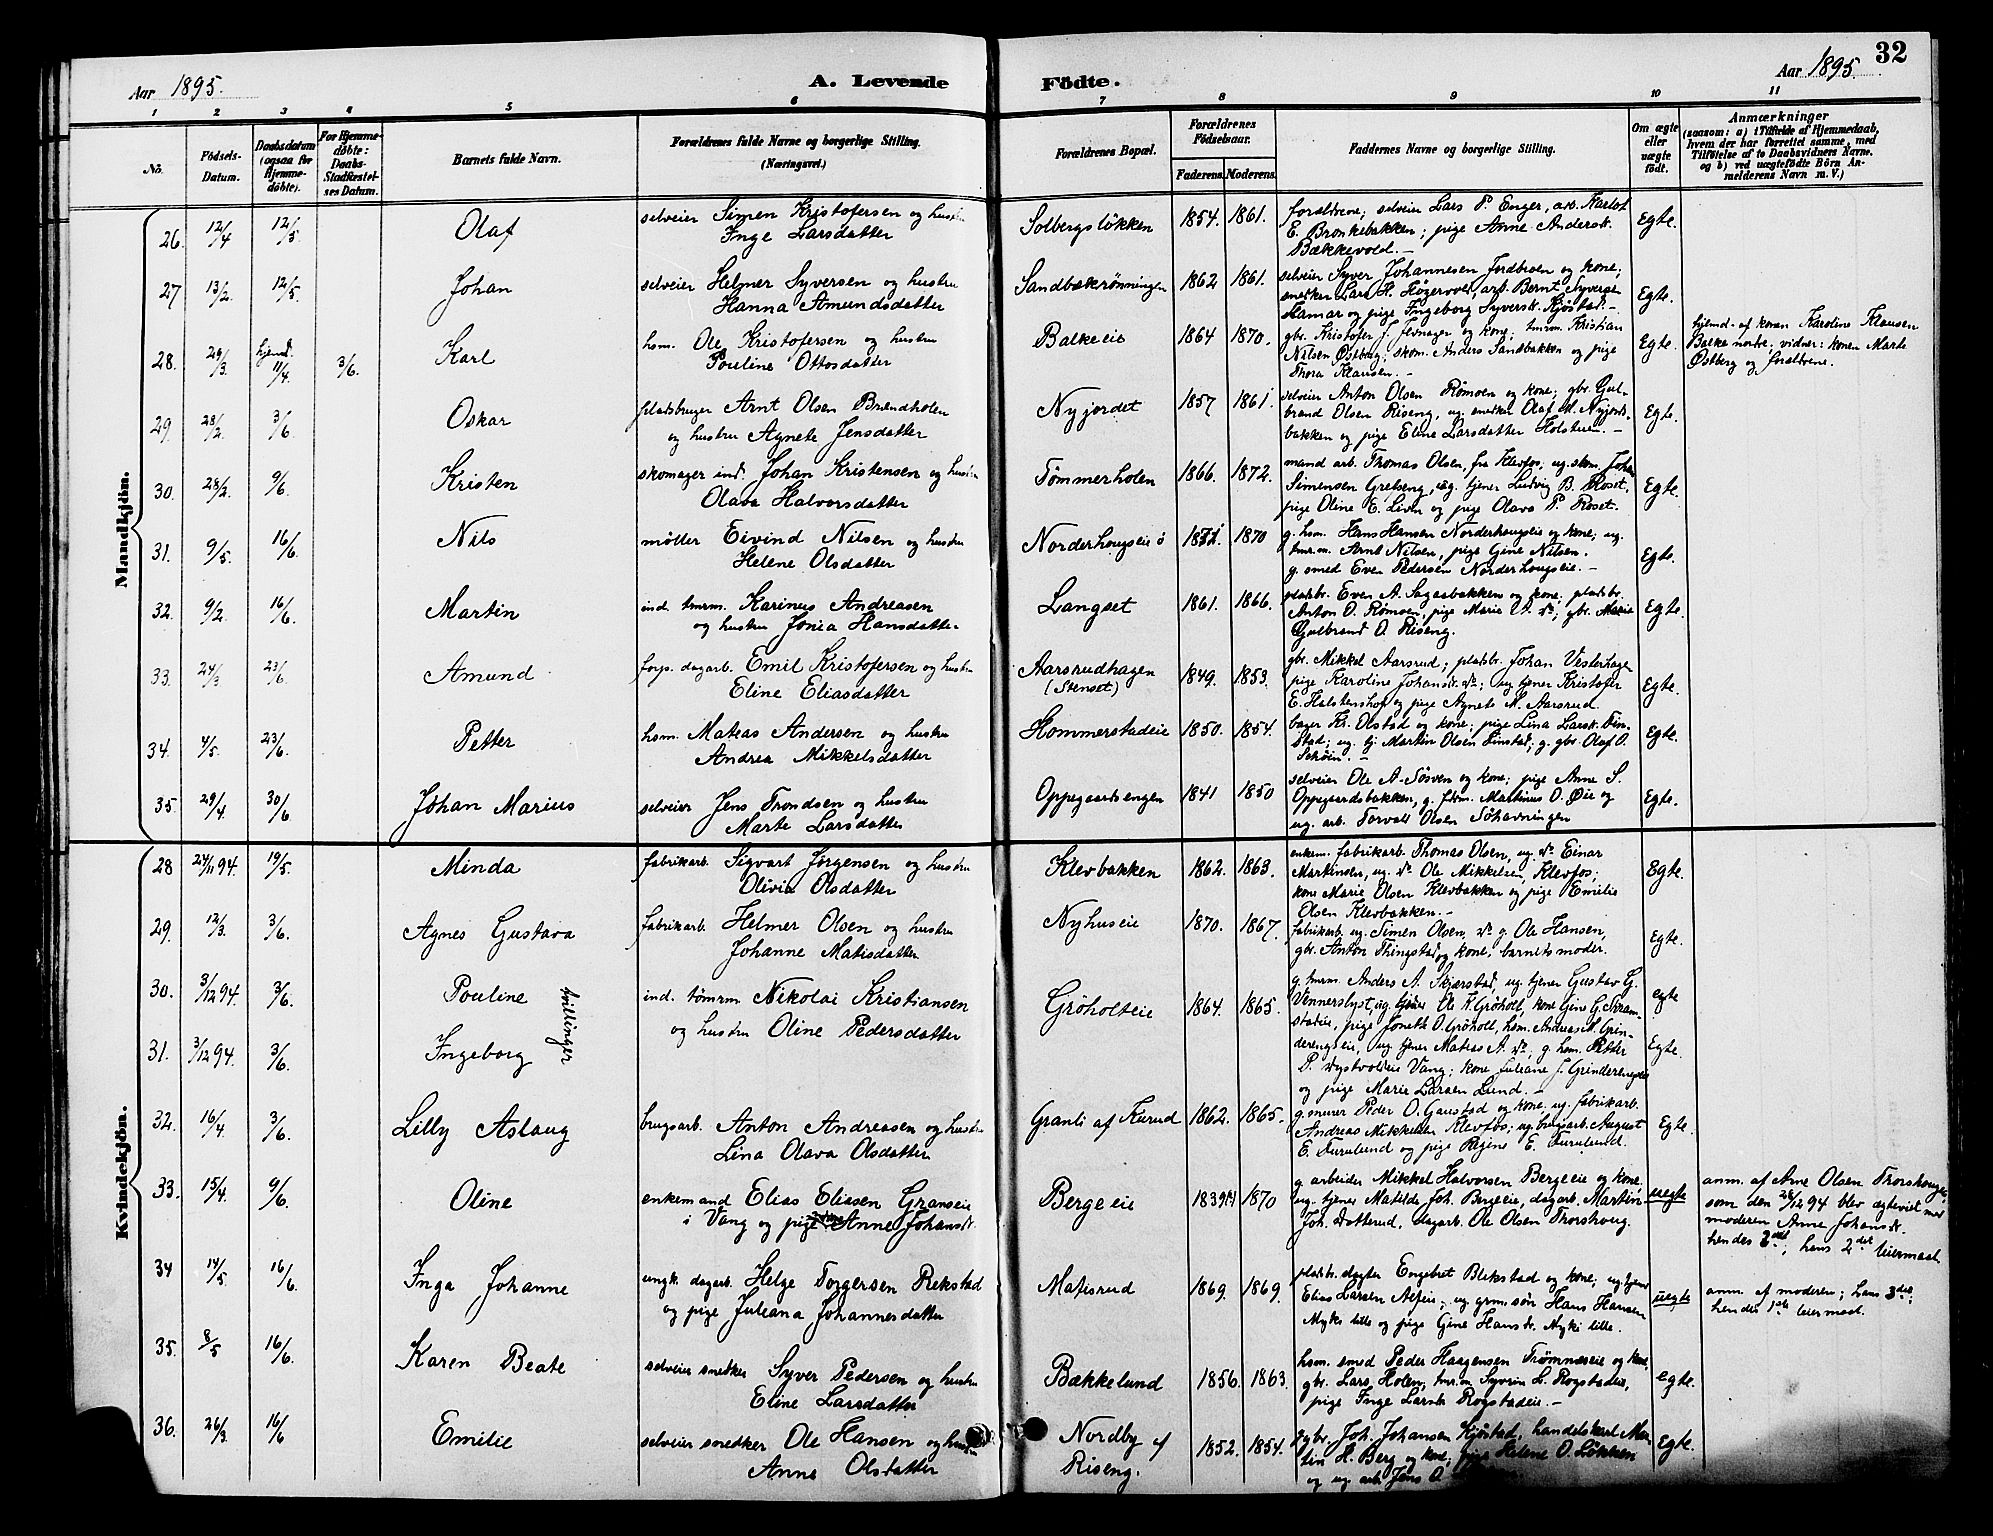 Aar 1895.
A. Levende
Födte.
Aar 1895.
32
1 2 3 4 5 6 7 8 9 10 11
No.
Födsels-
Datum.
Daabsdatum
(ogsaa for
Hjemme-
döbte).
For Hjemme-
döbte:
Daabs-
Stadfæstel-
ses Datum.
Barnets fulde Navn.
Forældrenes fulde Navne og borgerlige Stilling.
(Næringsvei.)
Forældrenes Bopæl.
Forældrenes
Födselsaar.
Faderens. Moderens.
Faddernes Navne og borgerlige Stilling.
Om ægte
eller
uægte
födt.
Anmærkninger
(saasom: a) i Tilfælde af Hjemmedaab,
hvem der har forrettet samme, med
Tilföielse af to Daabsvidners Navne,
og b) ved uægtefödte Börn An-
melderens Navn m. V.)
Mandkjön.
26. 12/4 12/5 Olaf
selveier Simen Kristofersen og hustru
Inge Larsdatter
Solbergsløkken 1854. 1861.
forældrene; selveier Lars P. Enger, arb. Karlot
E. Bronkebakken; pige Anne Andersdt.
Bækkevold. –
Egte.
27 13/2. 12/5. Johan
selveier Helmer Syversen og hustru
Hanna Amundsdatter
Sandbakrønningen 1862 1861.
selveier Syver Johannesen Jordbroen og kone;
snedker Lars H. arb. Bernt Syversen
Hamar og pige Ingeborg Syversdt. Kjøstad. –
Egte.
28. 29/3. hjemd. 11/4. 3/6. Karl
hsm. Ole Kristofersen og hustru
Pouline Ottosdatter
Balkeeie 1864 1870.
gbr. Kristofer J. Jernager og kone; tmrm. Kristian
Nilsen Østberg; skom. Anders Sandbakken og pige
Thora Klausen. –
Egte
hjemd. af konen Karoline Klausen
Balke nordre. vidner: konen Marte
Østberg og forældrene.
29. 28/2. 3/6. Oskar
pladsbruger Arnt Olsen Brændholen
og hustru Agnete Jensdatter
Nyjordet 1857 1861.
selveier Anton Olsen Rømoen og kone; gbr. Gul-
brand Olsen Riseng, ug. snedker Olaf M. Nyjords-
bakken og pige Eline Larsdatter Holstuen. –
Egte.
30. 28/2. 9/6. Kristen
skomager ind. Johan Kristensen og hustru
Olava Halvorsdatter
Tømmerholen 1866. 1872.
mand arb. Thomas Olsen, fra Klevfos; ug. skom. Johan
Simensen Gretseng, ug. tjener Ludvig B. Roset,
pige Oline E. Lien og pige Olava P. Roset.
Egte.
31. 9/5. 16/6. Nils
møller Eivind Nilsen og hustru
Helene Olsdatter
Norderhougseie ö 1871 1870
g. hsm. Hans Hansen Norderhougseie og kone; ug.
tmrm. Arnt Nilsen, pige Gine Nilsen.
g. smed Even Pedersen Norderhougseie. –
Egte.
32. 9/2. 16/6. Martin
ind. tmrm. Karinus Andreasen
og hustru Jonia Hansdatter.
Langset 1861. 1866.
pladsbr. Even A. Sagaabakken og kone; pladsbr.
Anton O. Rømoen, pige Marie A. do; gbr.
Gulbrand O. Riseng.
Egte.
33. 24/3 23/6. Amund
forp. dagarb. Emil Kristofersen og hustru
Eline Eliasdatter
Aarsrudhagen
(Stenset)
1849. 1853.
gbr. Mikkel Aarsrud; pladsbr. Johan Vesterhagen
pige Karoline Johansdt. do; ug tjener Kristofer
E. Halstenshof og pige Agnete M. Aarsrud.
Egte.
34. 4/5. 23/6. Petter
hsm. Mateas Andersen og hustru
Andrea Mikkelsdatter
Hommerstadeie 1850. 1854.
bager Kr. Olstad og kone; pige Lina Larsdt. Fin-
stad; ug. tj. Martin Olsen Finstad; g. gbr. Olaf O.
Schøien. –
Egte.
35. 29/4. 30/6 Johan Marius
selveier Jens Trondsen og hustru
Marte Larsdatter
Oppegaardsengen 1841 1850
selveier Ole A. Søsven og kone; pige Anne S.
Oppegaardsbakken, g. fdrm. Martinus O. Øie og
ug. arb. Torvall Olsen Söhavningen
Egte.
Kvindekjön.
28 24/11 94. 19/5. Minda
fabrikarb. Sigvart Jørgensen og hustru
Olivia Olsdatter
Klevbakken 1862. 1863.
enkem. fabrikarb. Thomas Olsen, ug. do Einar
Martinsen, ug. do Ole Mikkelsen, Klevfos;
kone Marie Olsen Klevbakken og pige Emilie
Olsen Klevbakken. –
Egte.
29. 12/3. 3/6. Agnes Gustava
fabrikarb. Helmer Olsen og hustru
Johanne Matisdatter
Nyhuseie 1870. 1867.
fabrikarb. ug. Simen Olsen, do g. Ole Hansen,
gbr. Anton Thingstad og kone, barnets moder.
Egte.
30. 3/12 94. 3/6. Pouline
tvillinger
ind. tømrm Nikolai Kristiansen
og hustru Oline Pedersdatter
Gröholteie 1864. 1865.
g. tmrm. Anders A. Skjærstad, ug. tjener Gustav G.
Vennerslyst, ug. tjener Ole K. Gröholt, kone Gine G. Skram-
stadeie, pige Jonette O. Gröholt, hsm. Andreas M. Grin-
Egte
31. 3/12 94. 3/6. Ingeborg
derengseie, ug. tjener Mateas A. do; g. hsm. Petter
P. Dystvoldeie Vang; kone Juliane J. Grinderengseie
og pige Marie Larsen Lund. –
Egte.
32. 16/4. 3/6. Lilly Aslaug
brugsarb. Anton Andreasen og hustru
Lina Olava Olsdatter
Granli af Kurud 1862. 1865.
g. murer Peder O. Gaustad og kone. ug. fabrikarb.
Andreas Mikkelsen Klevfos; ug. brugsarb. August
E. Furulund og pige Regine E. Furulund.
Egte.
33. 15/4. 9/6. Oline
enkemand Elias Eliasen Granseie
i Vang og pige Anne Johansdt.
Bergeeie 1839 1870
g. arbeider Mikkel Halvorsen Bergeeie og kone.
ug. tjener Matelde Joh. Bergeeie, dagarb. Martin
Joh. Dotterud, dagarb. Ole Olsen Thorshoug.
uegte
anm. af Arne Olsen Thorshoug,
som den 26/12 94 blev ægteviet med
moderen Anne Johansdt.
hendes 3det, hans 2det leiermaal.
34 14/5. 16/6. Inga Johanne
ungk. dagarb. Helge Torgersen Rekstad
og pige Juliana Johannesdatter
Matisrud 1869. 1869.
pladsbr. dagter Engebret Blikstad og kone; ug. tjener
Elias Larsen Alfeie; ug grmsøn Hans Hansen
Myke lille og pige Gine Hansdt. Myke lille.
uegte
anm. af moderen; hans 3die;
hendes 1ste leiermaal.
35. 8/5 16/6. Karen Beate
selveier snedker Syver Pedersen og hustru
Eline Larsdatter
Bækkelund 1856. 1863.
hsm. smed Peder Haagensen Trømnæseie og kone,
gbr. Lars Holen, tmrm Syvrin L. Rogstadeie,
pige Inge Larsdt Rogstadeie. –
Egte.
36. 26/3. 16/6 Emilie
selveier snedker Ole Hansen og hustru
Anne Olsdatter
Nordby af
Riseng.
1852. 1854.
gbr. Joh. Johansen Kjøstad, handelskarl Mar-
tin H. Berg og kone; pige Helene O. Løkken
og ug. arb. Jens O.
Egte.